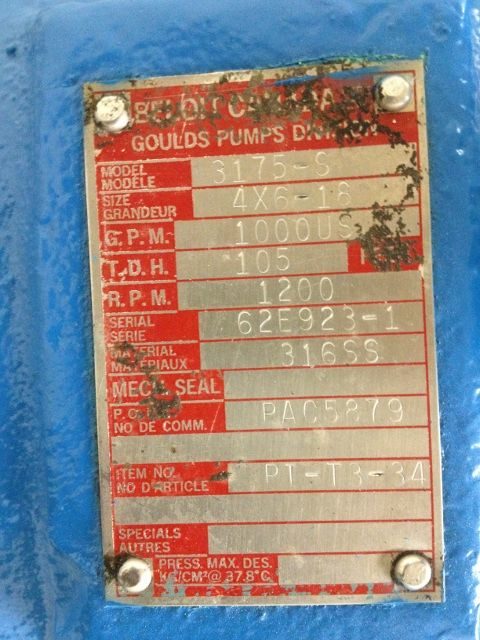 GOULDS PUMPS DIVISION
MODEL 3175-S
MODÈLE
SIZE 4X6-18
GRANDEUR
G.P.M. 1000US
T.D.H. 105
R.P.M. 1200
SERIAL 62E923-1
SÉRIE
MATERIAL 316SS
MATÉRIAUX
MECH. SEAL
PAC5879
NO DE COMM.
ITEM NO. PT-T3-34
NO D'ARTICLE
SPECIALS
AUTRES
PRESS. MAX. DES.
KG/CM² @ 37.8°C